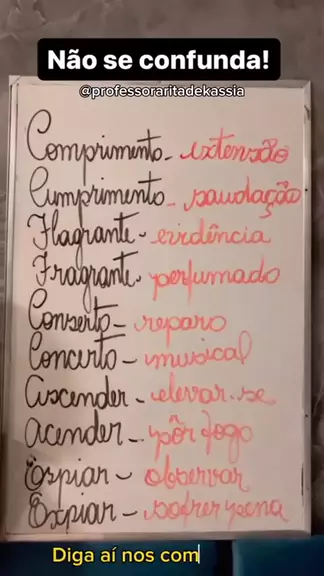 Não se confunda!
@professoraritadekassia
Comprimento - extensão
Cumprimento - saudação
Flagrante - evidência
Fragrante - perfumado
Conserto - reparo
Concerto - musical
Ascender - elevar-se
acender - pôr fogo
Espiar - observar
Expiar - sofrer pena
Diga aí nos com